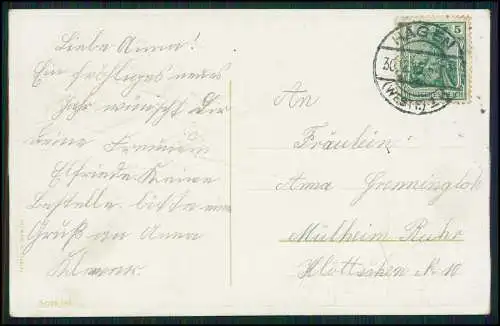 Liebe Anna!
Ein fröhliges neues
Jahr wünscht Dir
deine Freundin
Elfriede
Bestelle bitte einen
Gruß an Anna
HAGEN
30
(WESTF.)
5
An
Fräulein
Anna
Mülheim Ruhr
N 10